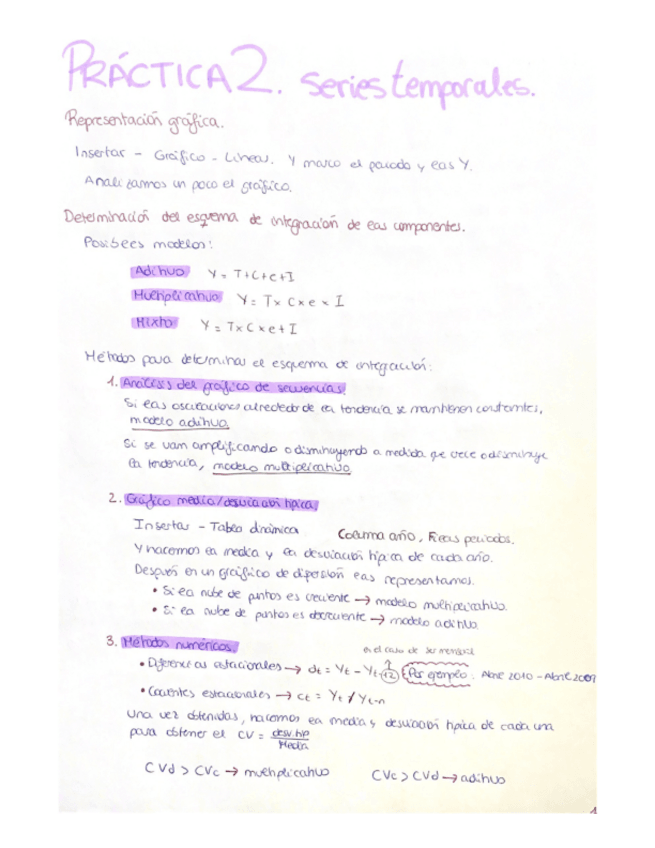 PRÁCTICA 2. Series temporales.
Representación gráfica.
Insertar - Gráfico - Líneas. Y marco el periodo y las Y.
Analizamos un poco el gráfico.
Determinación del esquema de integración de las componentes.
Posibles modelos:
Aditivo Y = T+C+e+I
Multiplicativo Y = T x C x e x I
Mixto Y = T x C x e + I
Métodos para determinar el esquema de integración:
1. Análisis del gráfico de secuencias.
Si las oscilaciones alrededor de la tendencia se mantienen constantes,
modelo aditivo.
Si se van amplificando o disminuyendo a medida que crece o disminuye
la tendencia, modelo multiplicativo.
2. Gráfico media/desviación típica.
Insertar - Tabla dinámica Columna año, Filas periodos.
Y hacemos la media y la desviación típica de cada año.
Después en un gráfico de dispersión las representamos.
• Si la nube de puntos es creciente → modelo multiplicativo.
• Si la nube de puntos es decreciente → modelo aditivo.
3. Métodos numéricos.
en el caso de ser mensual
• Diferencias estacionales → dt = Yt - Yt-12 (Por ejemplo: Abril 2010 - Abril 2009
• Cocientes estacionales → ct = Yt / Yt-n
Una vez obtenidas, hacemos la media y desviación típica de cada una
para obtener el CV = desv tip / Media
CVd > CVc → multiplicativo CVc > CVd → aditivo
1